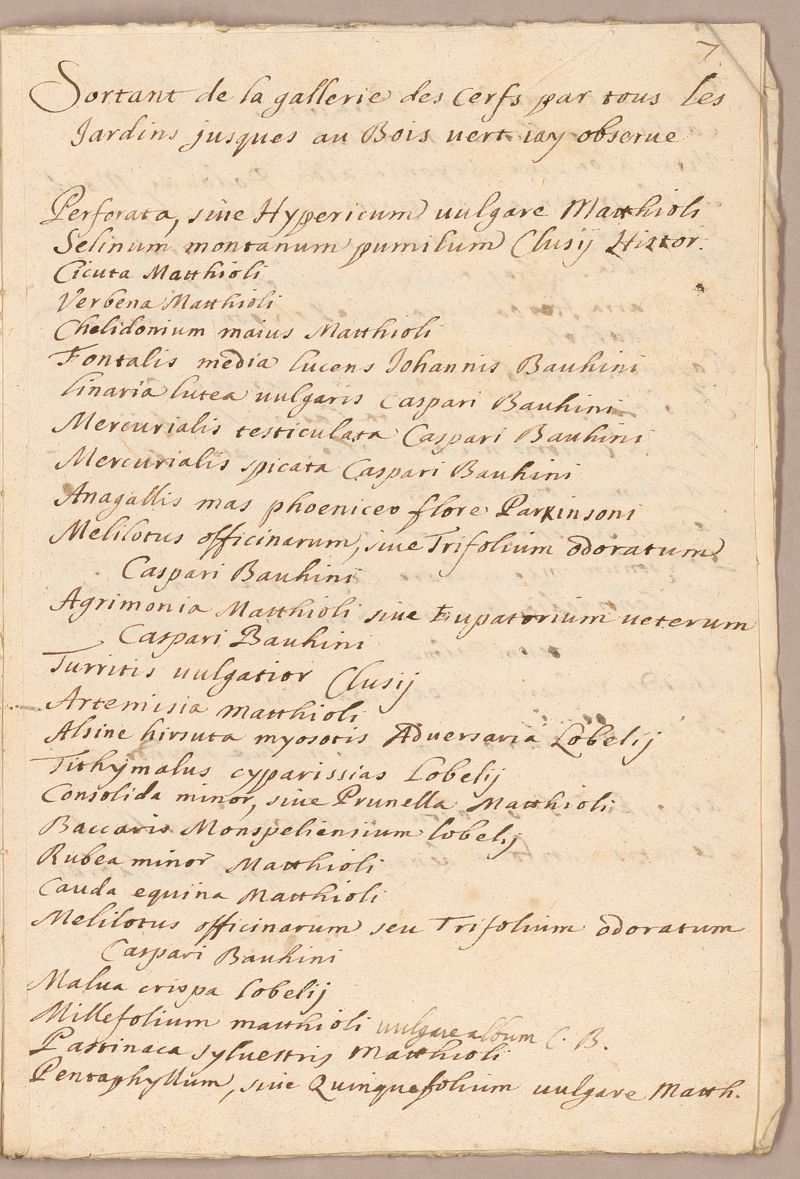 7
Sortant de la gallerie des Cerfs par tous les
Jardins jusques au Bois vert iay obserue
Perforata, siue Hypericum uulgare Matthioli
Selinum montanum pumilum Clusij Histor.
Cicuta Matthioli
Verbena Matthioli
Chelidonium maius Matthioli
Fontalis media lucens Johannis Bauhini
Linaria lutea uulgaris Caspari Bauhini
Mercurialis testiculata Caspari Bauhini
Mercurialis spicata Caspari Bauhini
Anagallis mas phoeniceo flore Parkinsoni
Melilotus officinarum, siue Trifolium odoratum
Caspari Bauhini
Agrimonia Matthioli siue Eupatorium ueterum
Caspari Bauhini
Turritis uulgatior Clusij
Artemisia matthioli
Alsine hirsuta myosotis Aduersaria Lobelij
Tithymalus cyparissias Lobelij
Consolida minor, siue Prunella Matthioli
Baccaris Monspeliensium lobelij
Rubea minor Matthioli
Cauda equina Matthioli
Melilotus officinarum seu Trifolium odoratum
Caspari Bauhini
Malua crispa Lobelij
Millefolium matthioli uulgare album C. B.
Pastinaca syluestris Matthioli
Pentaphyllum, siue Quinquefolium uulgare Matth.